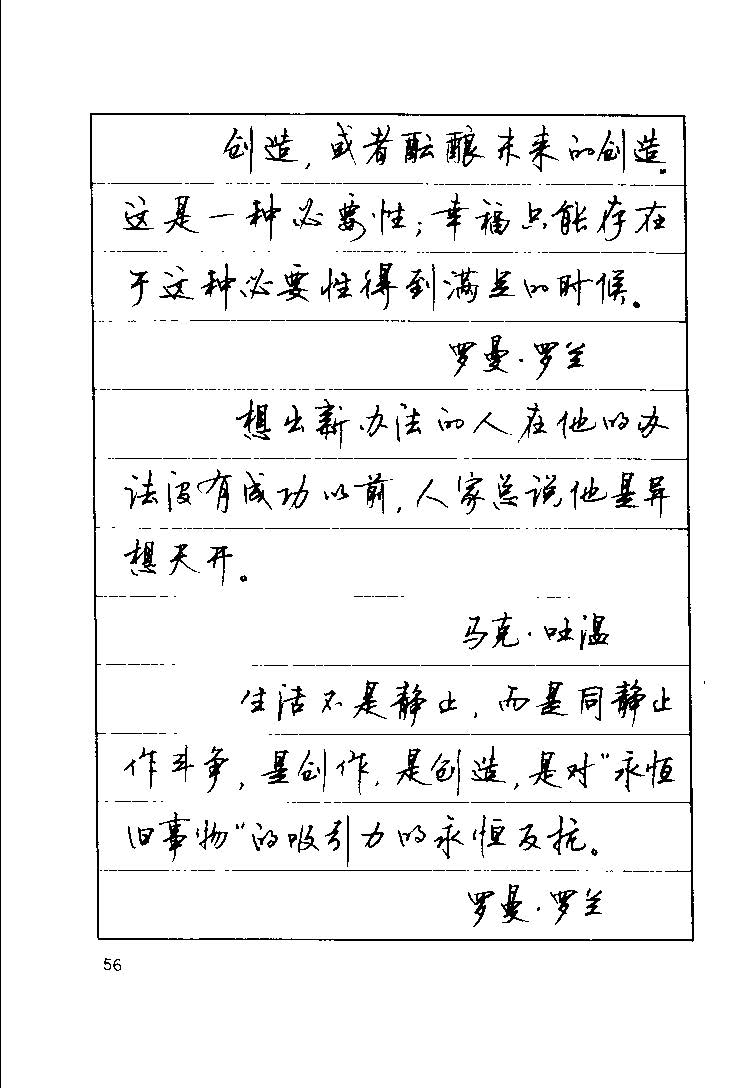 创造，或者酝酿未来的创造。
这是一种必要性；幸福只能存在
于这种必要性得到满足的时候。
罗曼·罗兰
想出新办法的人在他的办
法没有成功以前，人家总说他是异
想天开。
马克·吐温
生活不是静止，而是同静止
作斗争，是创作，是创造，是对“永恒
旧事物”的吸引力的永恒反抗。
罗曼·罗兰
56